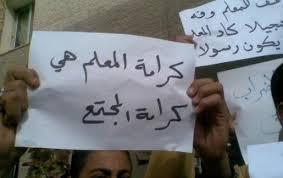 كرامة المعلم هي
كرامة المجتمع
للمعلم وفه
تبجيلا كاد المعلم
يكون رسولا